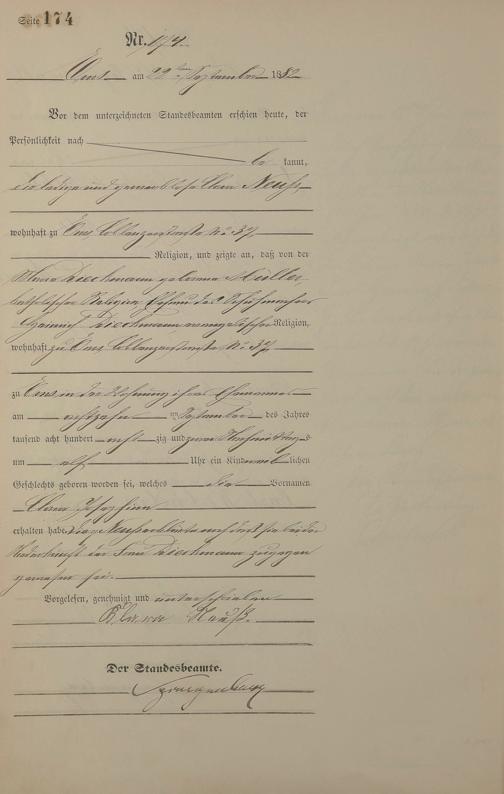 Seite 174
Nr. 174.
Ems am 22ten September 1882
Vor dem unterzeichneten Standesbeamten erschien heute, der
Persönlichkeit nach
be kannt,
die ledige und gewerblose Clara Neuß
wohnhaft zu Ems, Coblenzerstraße No 37,
Religion, und zeigte an, daß von der
Maria Dieckmann geborene Müller,
katholischer Religion, Ehefrau des Schuhmacher
Heinrich Dieckmann evangelischer Religion,
wohnhaft zu Ems Coblenzerstraße No 37
zu Ems in der Wohnung ihres Ehemannes
am achtzehn ten September des Jahres
tausend acht hundert acht zig und zwei Nachmittags
um elf Uhr ein Kind weiblichen
Geschlechts geboren worden sei, welches die Vornamen
Clara Josephine
erhalten habe. Die Neuß erklärte noch daß sie bei der
Niederkunft der Frau Dieckmann zugegen
gewesen sei.
Vorgelesen, genehmigt und unterschrieben
Klara Neuß.
Der Standesbeamte.